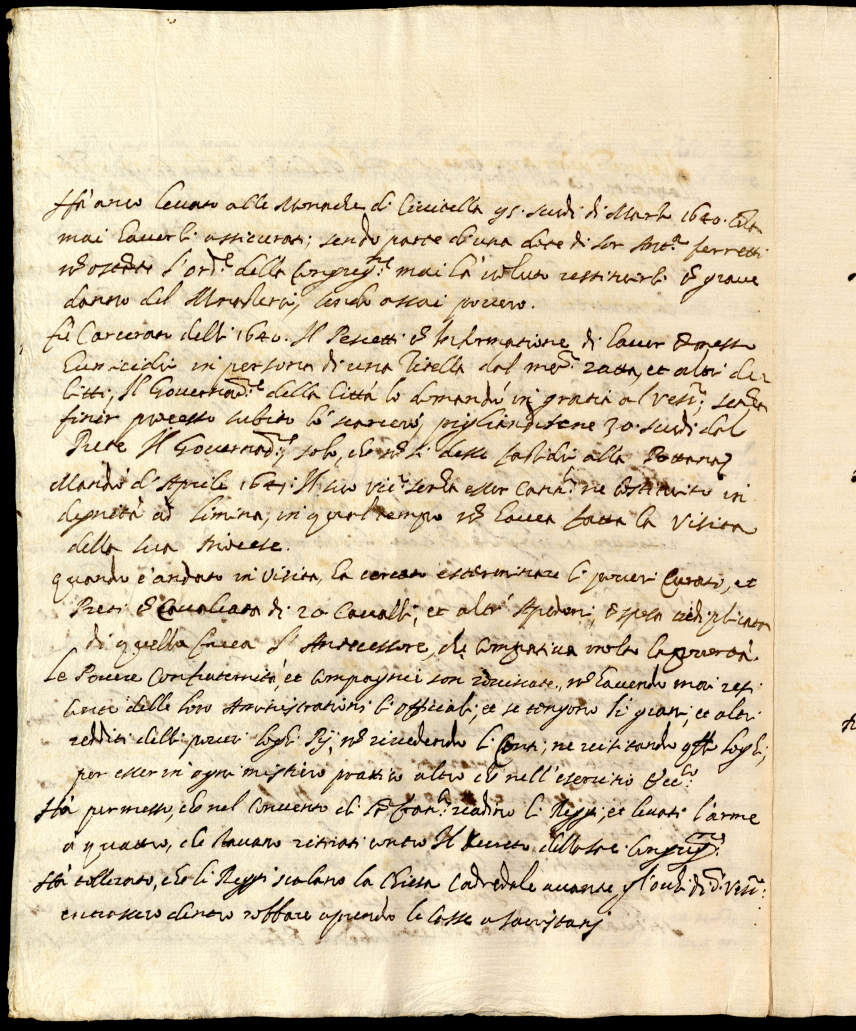 Hà anco levato alle Monache di Civitella 95. scudi di Marzo 1640. senza
mai haverli assicurati; sendo parte d'una dote di Sor Ant.ª ferretti
nõ ostãte l'ord.e della Congreg.ne mai là voluto restituirli cõ grave
danno del Monastero, sendo assai povero.
fù Carcerato delli 1640. Il Pescetti cõ Informatione di haver cõmesso
humicidii in persona di una Zitella dal med.º zatta, et altri de-
litti, Il Governad.re della Città lo domandò in gratia al Vesc.º, senza
finir processo subito lo scarcerò, pigliandosene 30. scudi dal
Prete Il Governad.re, solo, che nõ si desse fastidio alla
Mandò d'Aprile 1641. Il suo Vic.º senza esser Can.co ne cõstituito in
dignità ad limina, in qual tempo nõ havea fatta la Visita
della sua Diocese.
quando è andato in Visita, ha cercato esterminare li poveri Curati, et
Preti cõ Cavalcata di 20 Cavalli, et altri spedoni, cõ spesa reduplicata
di quella facea l'Antecessore, che compativa molto la povertà.
le Povere Confraternità, et Compagnie son rovinate, nõ havendo mai res-
 delle loro Administrationi li offitiali, et se tengono li grani, et altri
redditi delli poveri lochi Pij, nõ rivedendo li Conti, ne visitando q.sti lochi,
per esser in ogni mistiero prattico altro che nell'esercitio
Hà permesso, che nel Convento di S. fran.co stiano li Reggi, et levati l'arme
à quattro, che stavano ritirati contro Il decreto della sac. Congreg.ne
Hà tollerato, che li Reggi scalano la Chiesa Cadredale avante gl'occhi di d.º Vesc.º
entrassero dentro robbare aprendo le Casse a sacristani